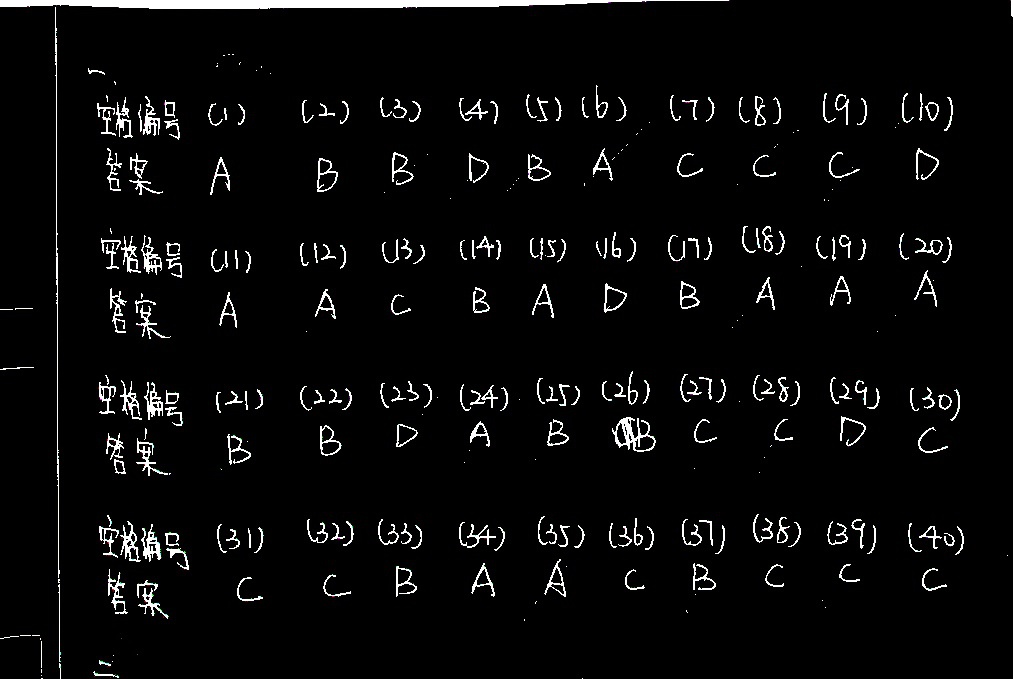 一、
空格编号 (1) (2) (3) (4) (5) (6) (7) (8) (9) (10)
答案 A B B D B A C C C D
空格编号 (11) (12) (13) (14) (15) (16) (17) (18) (19) (20)
答案 A A C B A D B A A A
空格编号 (21) (22) (23) (24) (25) (26) (27) (28) (29) (30)
答案 B B D A B B C C D C
空格编号 (31) (32) (33) (34) (35) (36) (37) (38) (39) (40)
答案 C C B A A C B C C C
二